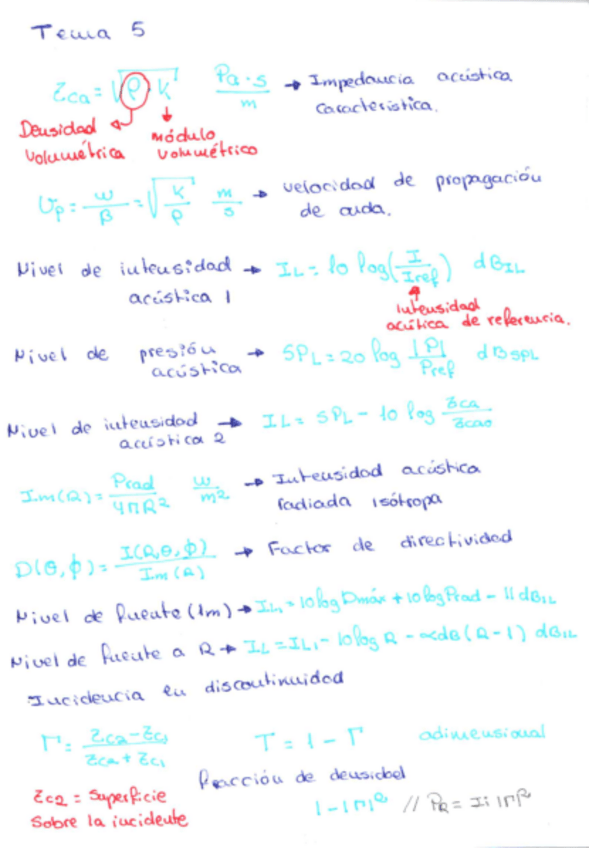 Tema 5
Zca = √(ρ · K)   Pa·s/m → Impedancia acústica
característica.
Densidad volumétrica
módulo volumétrico
Up = ω/β = √(K/ρ)   m/s → velocidad de propagación
de onda.
Nivel de intensidad → IL = 10 log(I/Iref)   dBIL
acústica 1
intensidad
acútica de referencia.
Nivel de presión → SPL = 20 log |P|/Pref   dBSPL
acústica
Nivel de intensidad → IL = SPL - 10 log Zca/Zcao
acústica 2
Im(R) = Prad/4πR²   w/m² → Intensidad acústica
radiada isótropa
D(θ,ϕ) = I(R,θ,ϕ)/Im(R) → Factor de directividad
Nivel de fuente (1m) → IL1 = 10 log Dmáx + 10 log Prad - 11 dBIL
Nivel de fuente a R → IL = IL1 - 10 log R - αdB(R-1) dBIL
Incidencia en discontinuidad
Γ = Zc2 - Zc1/Zc2 + Zc1   T = 1 - Γ   adimensional
Zc2 = Superficie
Sobre la incidente
Reacción de densidad
1 - |Γ|² // PR = Ii |Γ|²